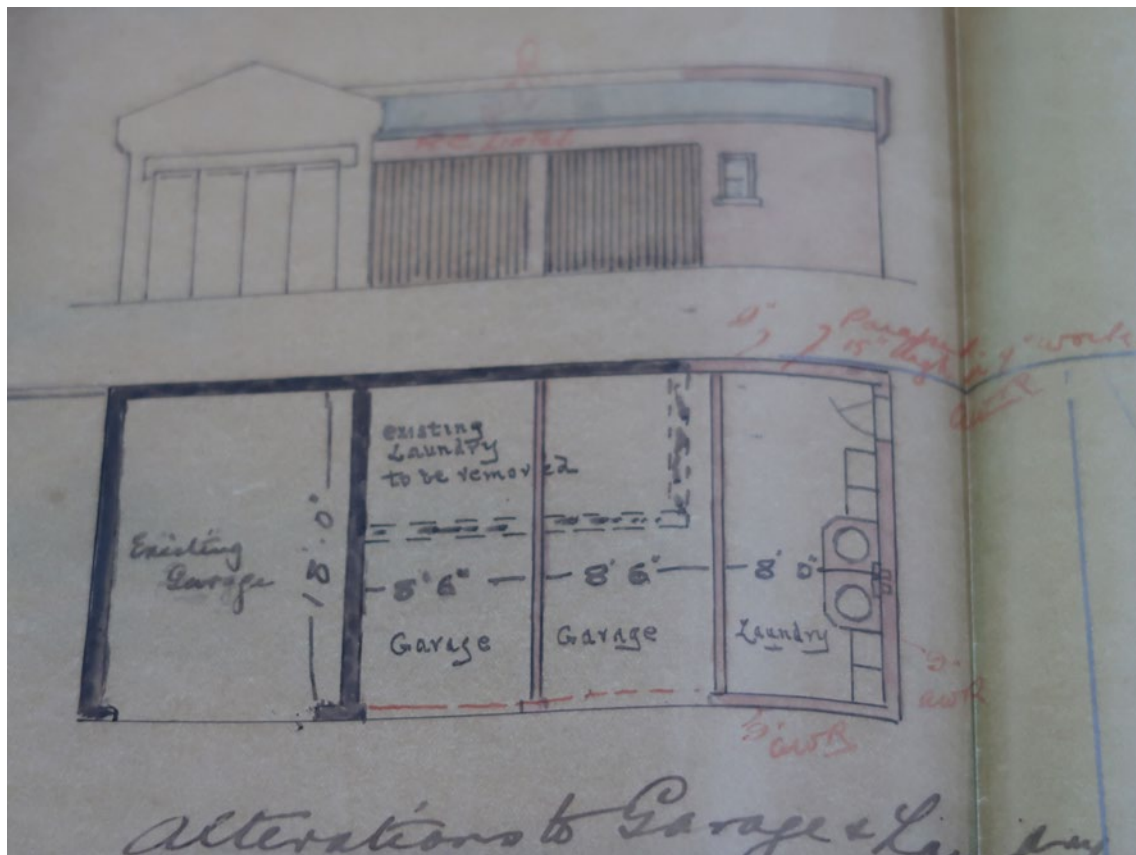 Lintel
9"
Parapet
15" high in 9" work
AWR
existing
Laundry
to be removed
Existing
Garage
18'. 0"
8' 6"
8' 6"
8' 0"
Garage
Garage
Laundry
9"
AWR
9"
AWR
Alterations to Garage &